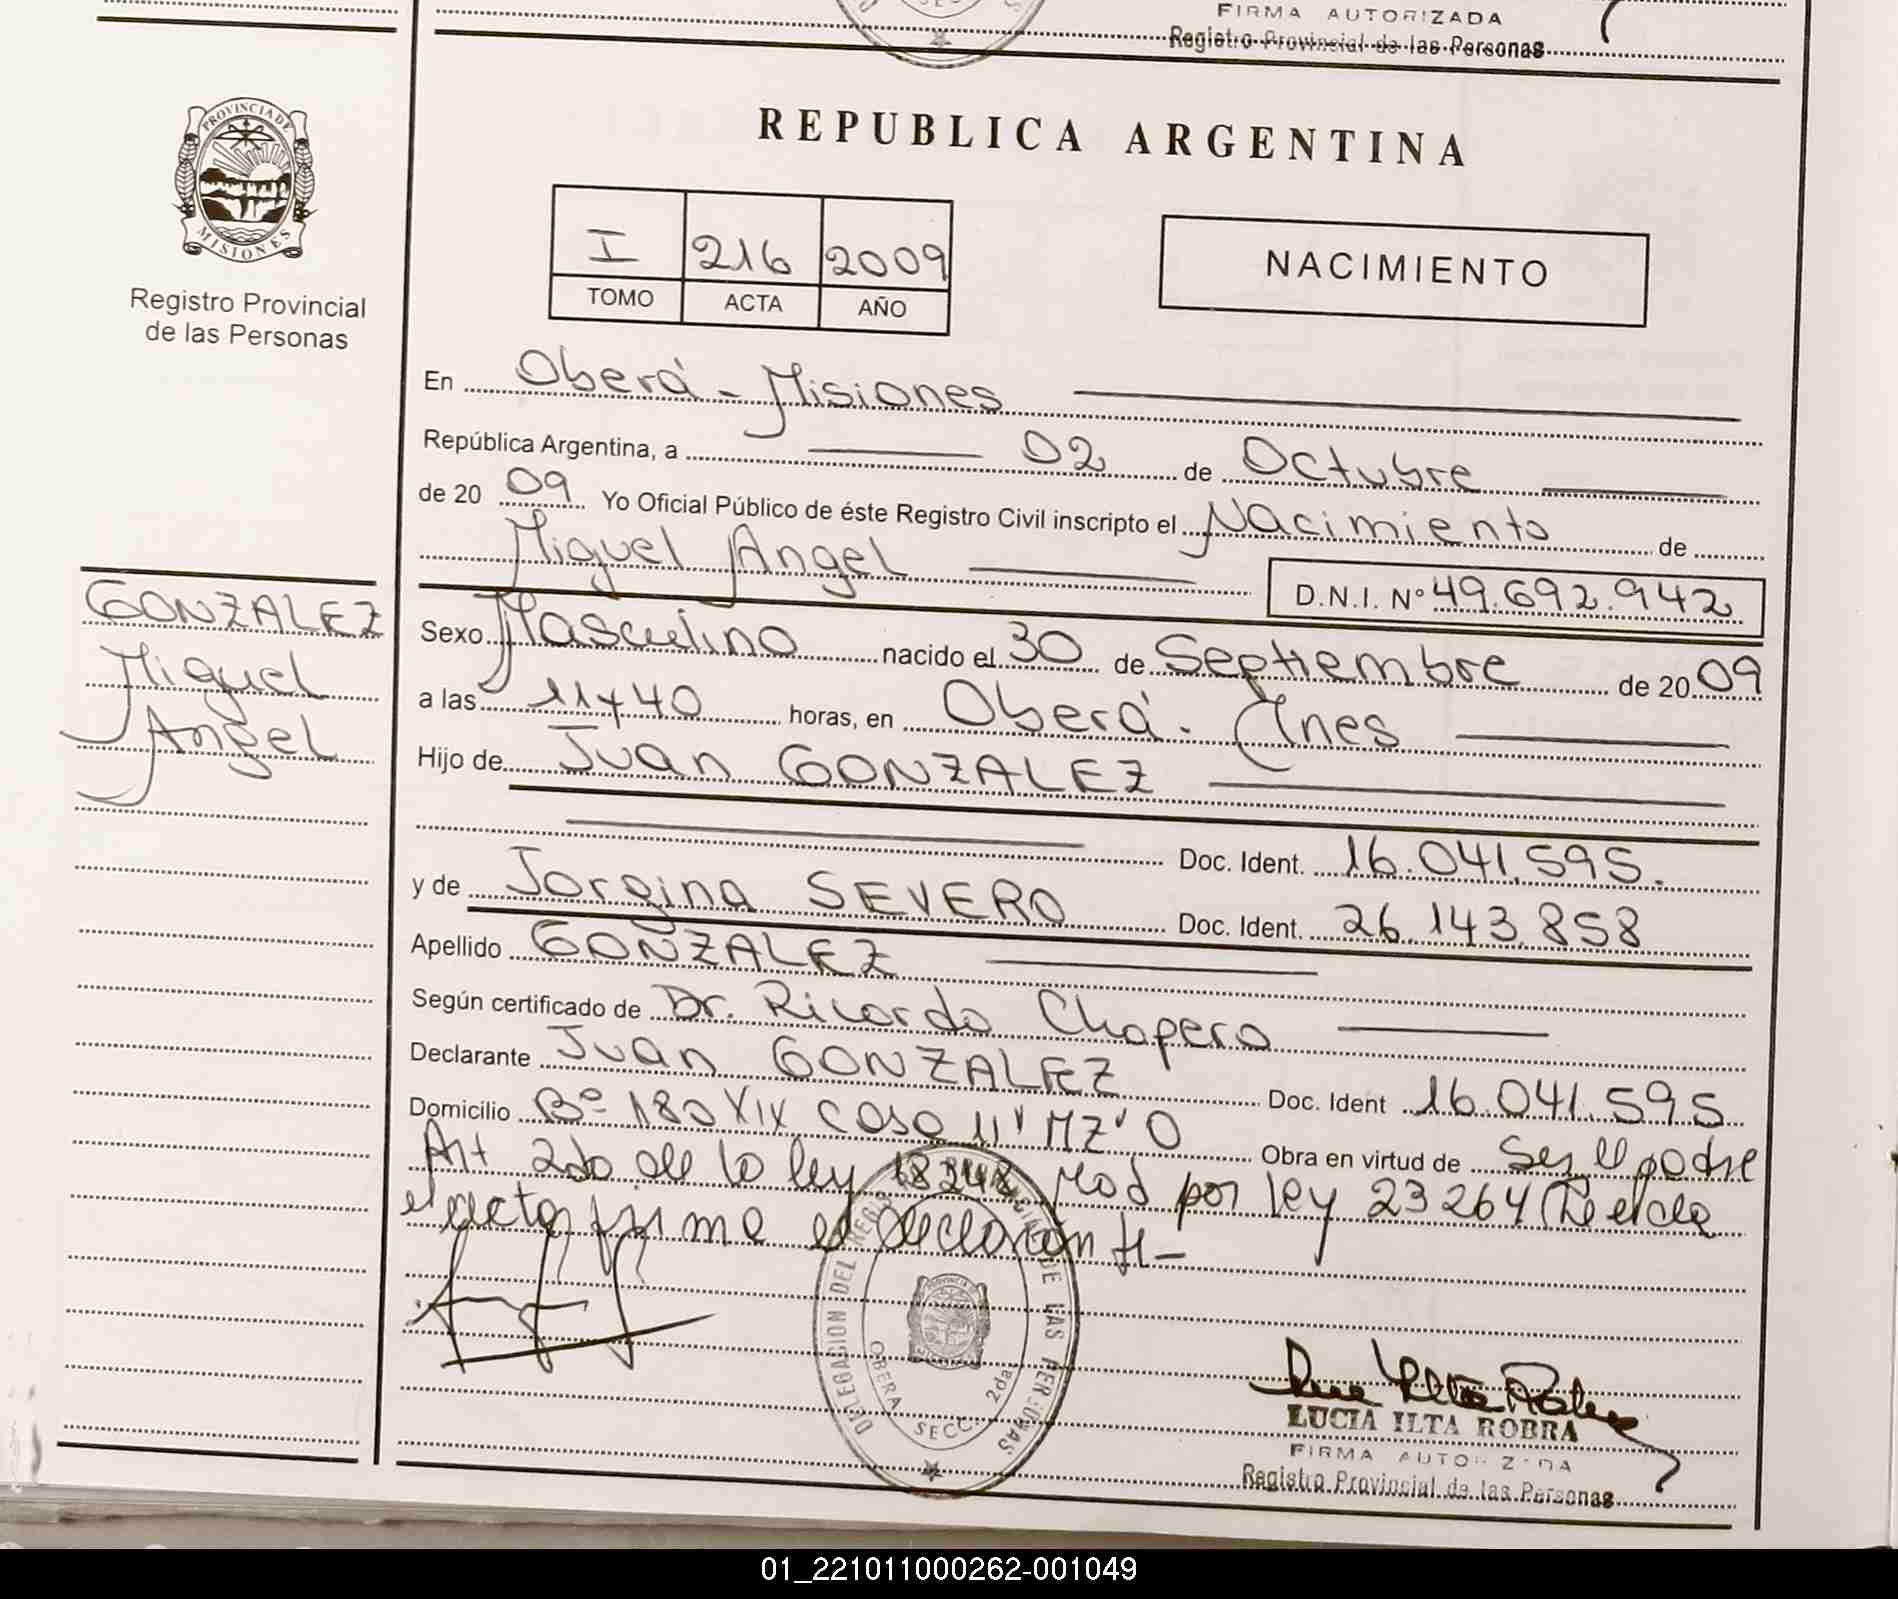 FIRMA AUTORIZADA
Registro Provincial de las Personas
PROVINCIA DE
MISIONES
Registro Provincial
de las Personas
REPUBLICA ARGENTINA
I 216 2009
TOMO ACTA AÑO
NACIMIENTO
En Oberá - Misiones
República Argentina, a 02 de Octubre
de 20 09 Yo Oficial Público de éste Registro Civil inscripto el Nacimiento de
Miguel Angel
D.N.I. Nº 49.692.942
GONZALEZ
Miguel
Angel
Sexo Masculino nacido el 30 de Septiembre de 20 09
a las 11 y 40 horas, en Oberá - Mnes
Hijo de Juan GONZALEZ
Doc. Ident. 16.041.595.
y de Jorgina SEVERO Doc. Ident. 26.143.858
Apellido GONZALEZ
Según certificado de Dr. Ricardo Chapero
Declarante Juan GONZALEZ Doc. Ident 16.041.595
Domicilio Bº 180 XIX casa 11 MZ O Obra en virtud de Ser el padre
Art 2do de la ley 18248 Mod por ley 23264
el acta firma el declarante-
DELEGACION DEL REGISTRO PROVINCIAL DE LAS PERSONAS
OBERA SECC. 2da.
LUCIA ILTA ROBRA
FIRMA AUTORIZADA
Registro Provincial de las Personas
01_221011000262-001049